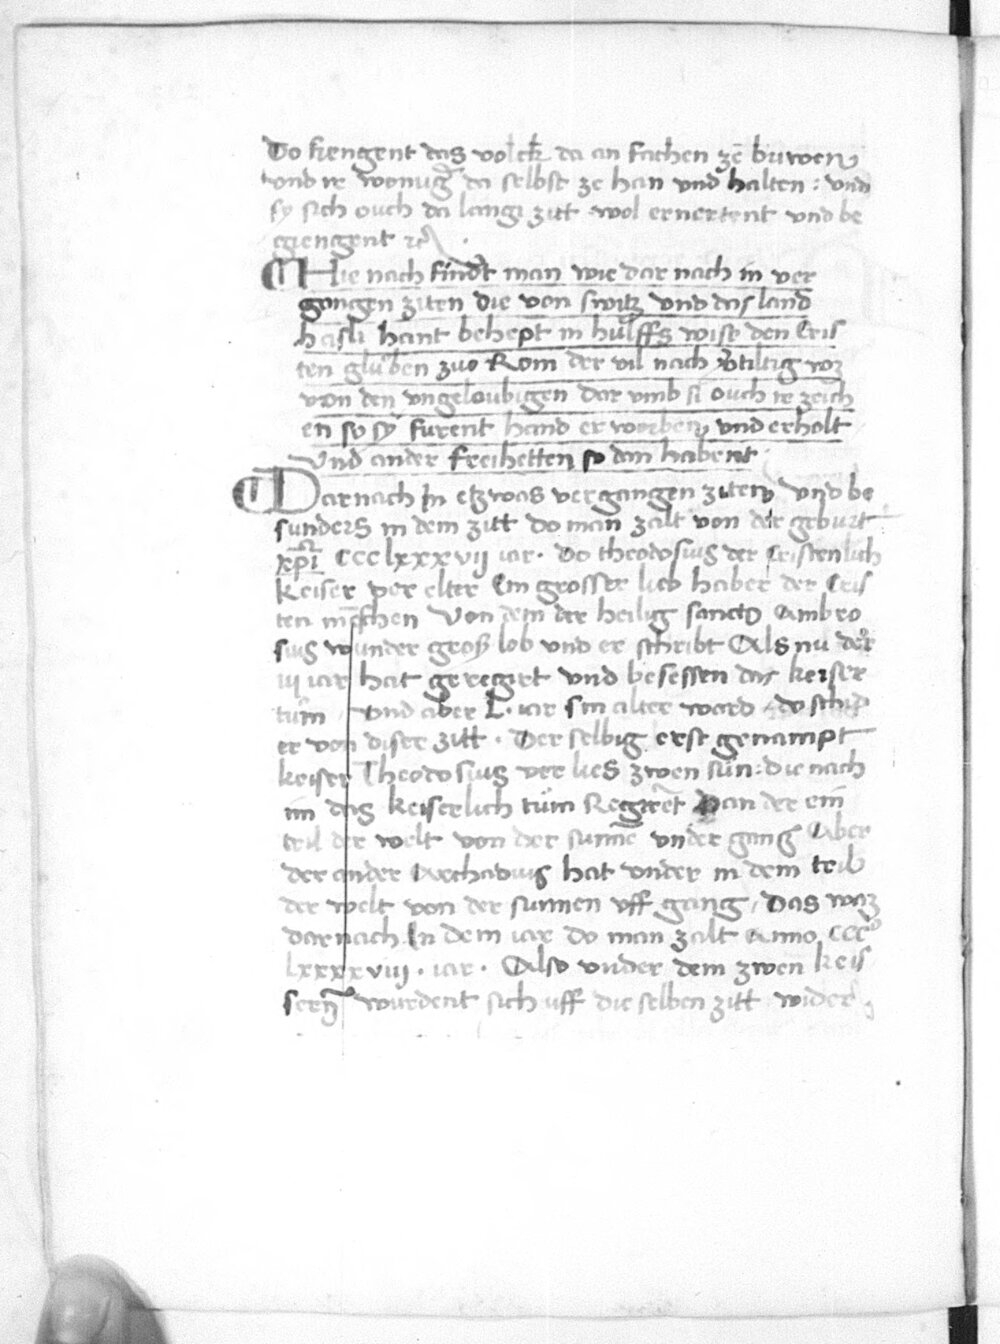 Do fiengent das volck da an fachen ze buwen
vnd ir wonūg da selbst ze han vnd halten : vnd
sy sich ouch da langi zitt wol ernertent vnd be
giengent
Hie nach findt man wie dar nach in ver
gangen ziten die von switz vnd das land
hasli hant behept in hulffs wise den Cris
ten glǔben zuo Rom der vil nach v̓tiltig waz
von den vngeloubigen dar vmb si ouch ir zeich
en so sy furent hand erworben vnd erholt
Vnd ander freihetten so dan habent
Darnach In etzwas vergangen ziten vnd be
sunders in dem zitt do man zalt von der geburt
xp̄i CCClxxxvij iar · do theodosius der Cristenlich
keiser der elter Ein grosser lieb haber der Cris
ten mēschen Von dem der heilig sanctus Ambro
sius wunder groß lob vnd er schribt Als nu der
iij iar hat geregirt vnd besessen das keiser
tům vnd aber L · iar sin alter ward do schid
er von diser zitt · Der selbig erst genampt
keiser Theodosius ver lies zwen sün : die nach
im das keiserlich tům Regiret Dan der ein
teil der welt von der sunnē vnder gang Aber
der ander Archadius hat vnder in dem teil
der welt von der sunnen vff gang / Das waz
darnach In dem iar do man zalt Anno CCCo
lxxxxviij · iar · Also vnder dem zwen keis
sern wurdent sich uff die selben zitt wider